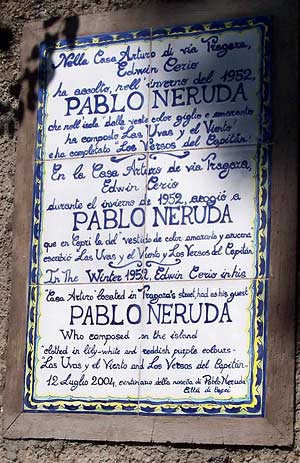 Nella Casa Arturo di via Pragara,
Edwin Cerio
ha accolto, nell'inverno del 1952,
PABLO NERUDA
che nell'isola "dalla veste color giglio e amaranto"
ha composto "Las Uvas y el Viento"
e ha completato "Los Versos del Capitán".
En la Casa Arturo de via Pragara,
Edwin Cerio
durante el invierno de 1952, acogió a
PABLO NERUDA
que en Capri la del "vestido de color amaranto y azucena
escribió Las Uvas y el Viento y Los Versos del Capitán
In The Winter 1952, Edwin Cerio in his
"Casa Arturo located in Pragara's street, had as his guest
PABLO NERUDA
Who composed on the island
"clotted in lily-white and reddish purple colours"
"Las Uvas y el Viento and Los Versos del Capitán"
12 Luglio 2004, centenario della nascita di Pablo Neruda
Città di Capri